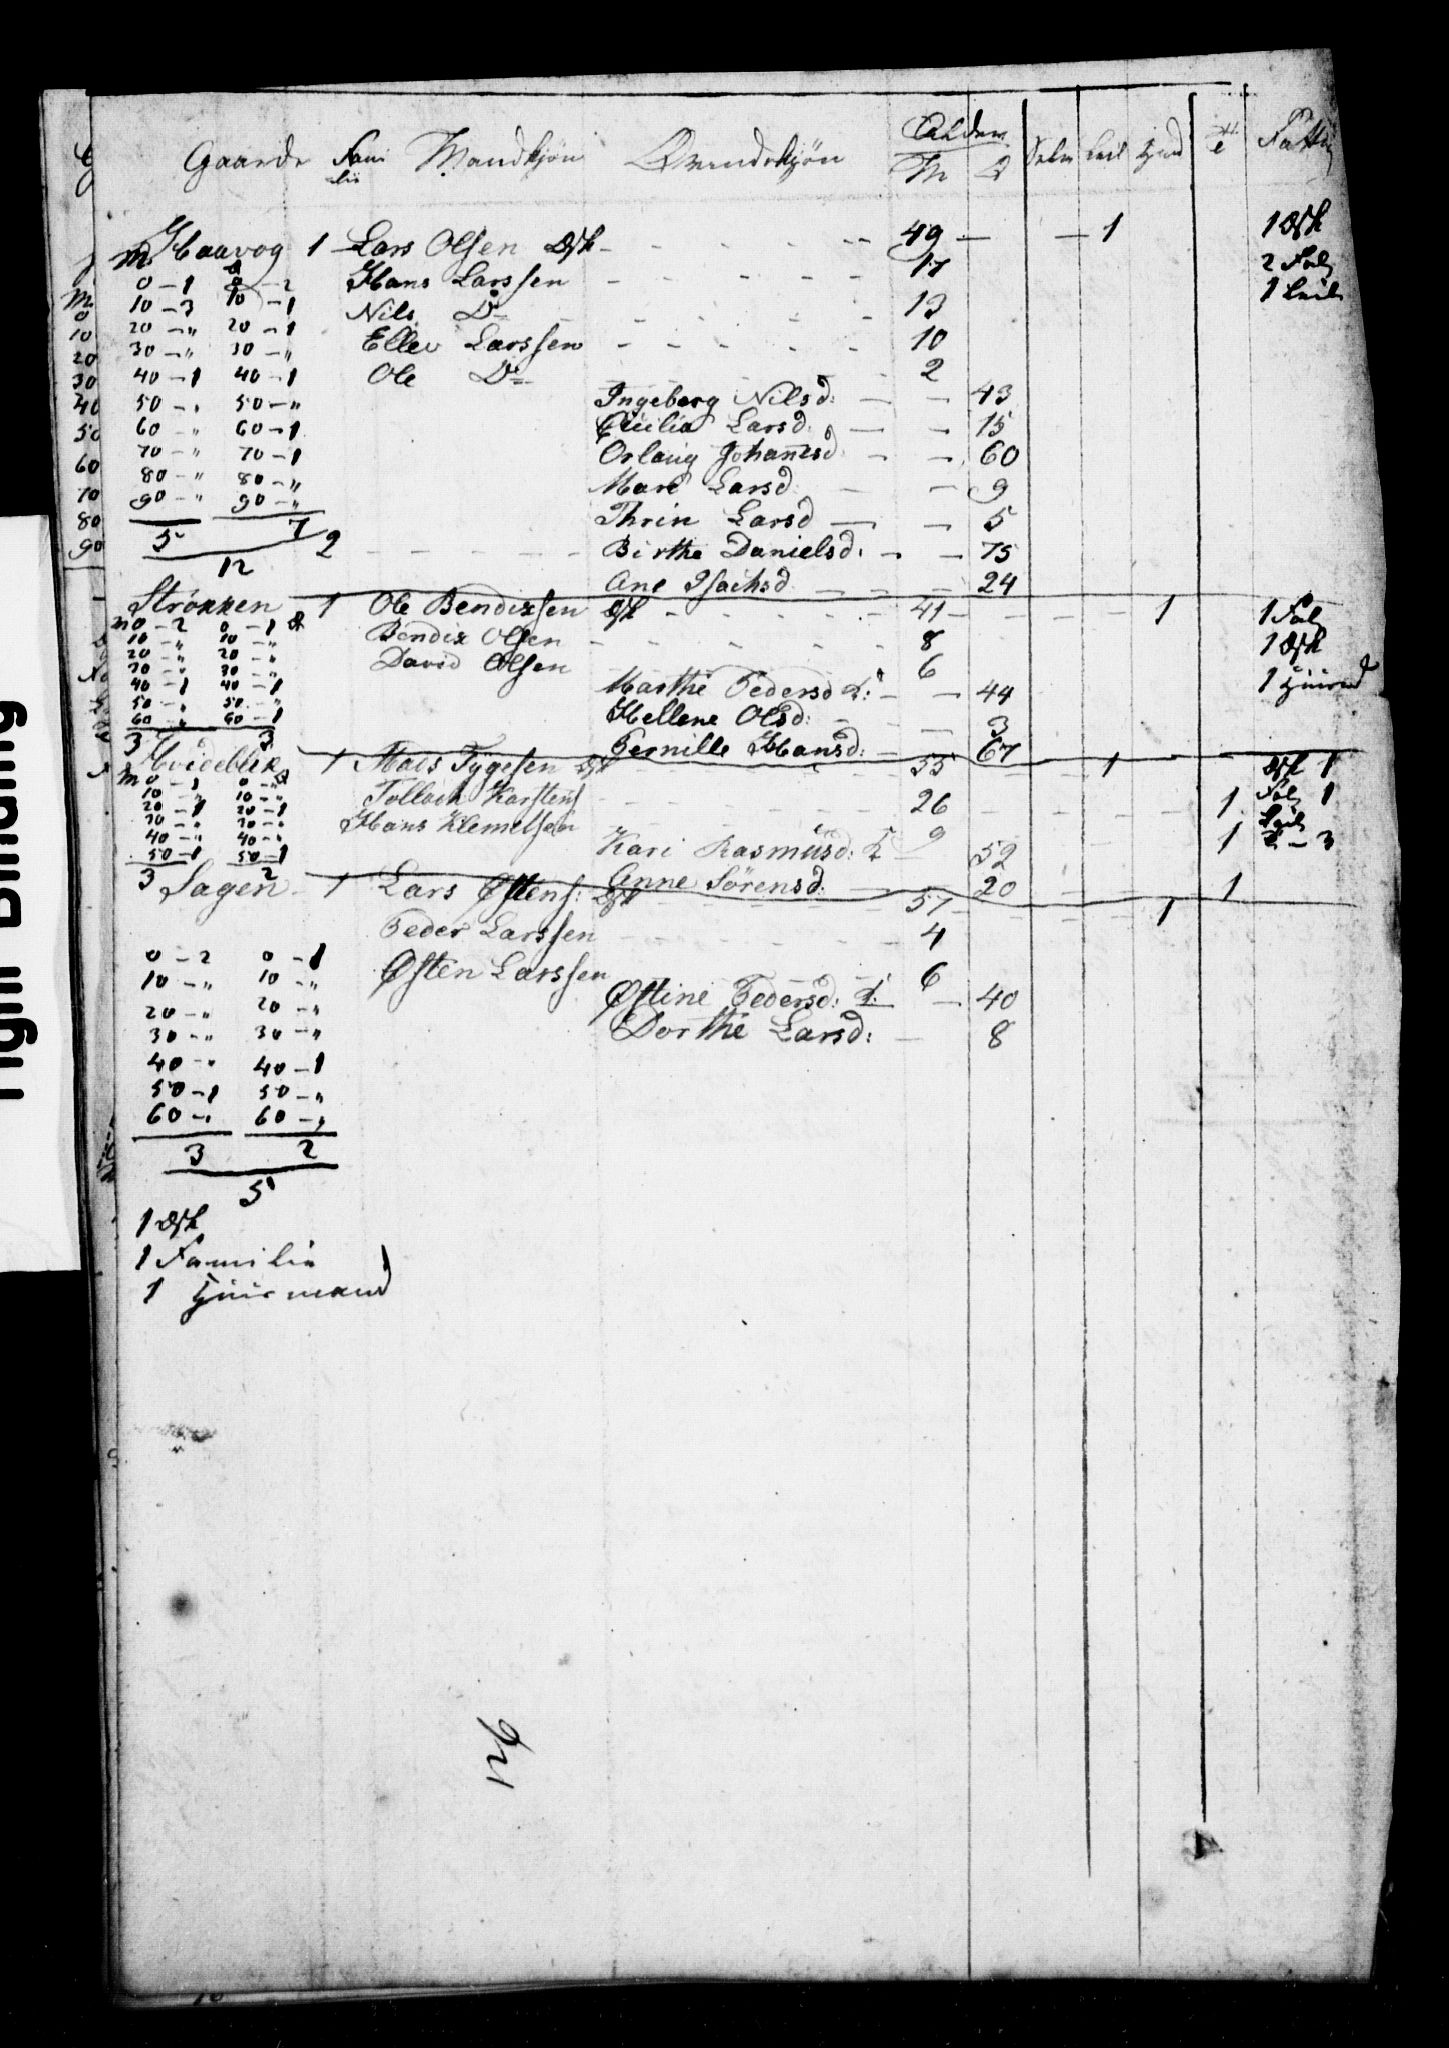 Gaarde Fami lie Mandkjön Qvindekjön Alder M Q Selv Leil Huus Fattig
Haavog 1 Lars Olsen 49 1
Hans Larssen 17 2 Fal
Nils Do 13 1 Leil
Ellev Larssen 10
Ole Do 2
Ingeborg Nilsd: 43
Cicilia Larsd: 15
Orlaug Johanesd 60
Mare Larsd 9
Thrin Larsd 5
2 Birthe Danielsd: 75
Ane Isachsd 24
M Q
0 - 1 0 - 2
10 - 3 10 - 1
20 - " 20 - 1
30 - " 30 - "
40 - 1 40 - 1
50 - " 50 - "
60 - " 60 - 1
70 - " 70 - 1
80 - " 80 - "
90 - " 90 - "
5 7
12
Strønnen 1 Ole Bendixsen 41 1 1 Fal
Bendix Olsen 8
David Olsen 6
Marthe Pedersd 44
Hellene Olsd: 3
Pernille Hansd: 67
M 0 - 2 0 - 1 Q
10 - " 10 - "
20 - " 20 - "
30 - " 30 - "
40 - 1 40 - 1
50 - " 50 - "
60 - " 60 - 1
3 3
Hvidebek 1 Mads Tygesen 55 1
Tollach Karstens 26 1
Hans Klemetsen 9
Kari Rasmusd: 52 1
Anne Sörensd: 20 1
M 0 - 1 0 - " Q
10 - " 10 - "
20 - 1 20 - 1
30 - " 30 - "
40 - " 40 - "
50 - 1 50 - 1
3 2
Sagen 1 Lars Østens: 57 1
Peder Larssen 4
Østen Larssen 6
Østine Pedersd: 40
Dorthe Larsd: 8
0 - 2 0 - 1
10 - " 10 - "
20 - " 20 - "
30 - " 30 - "
40 - " 40 - 1
50 - 1 50 - "
60 - " 60 - "
3 2
5
1 Familie
1 Huusmand